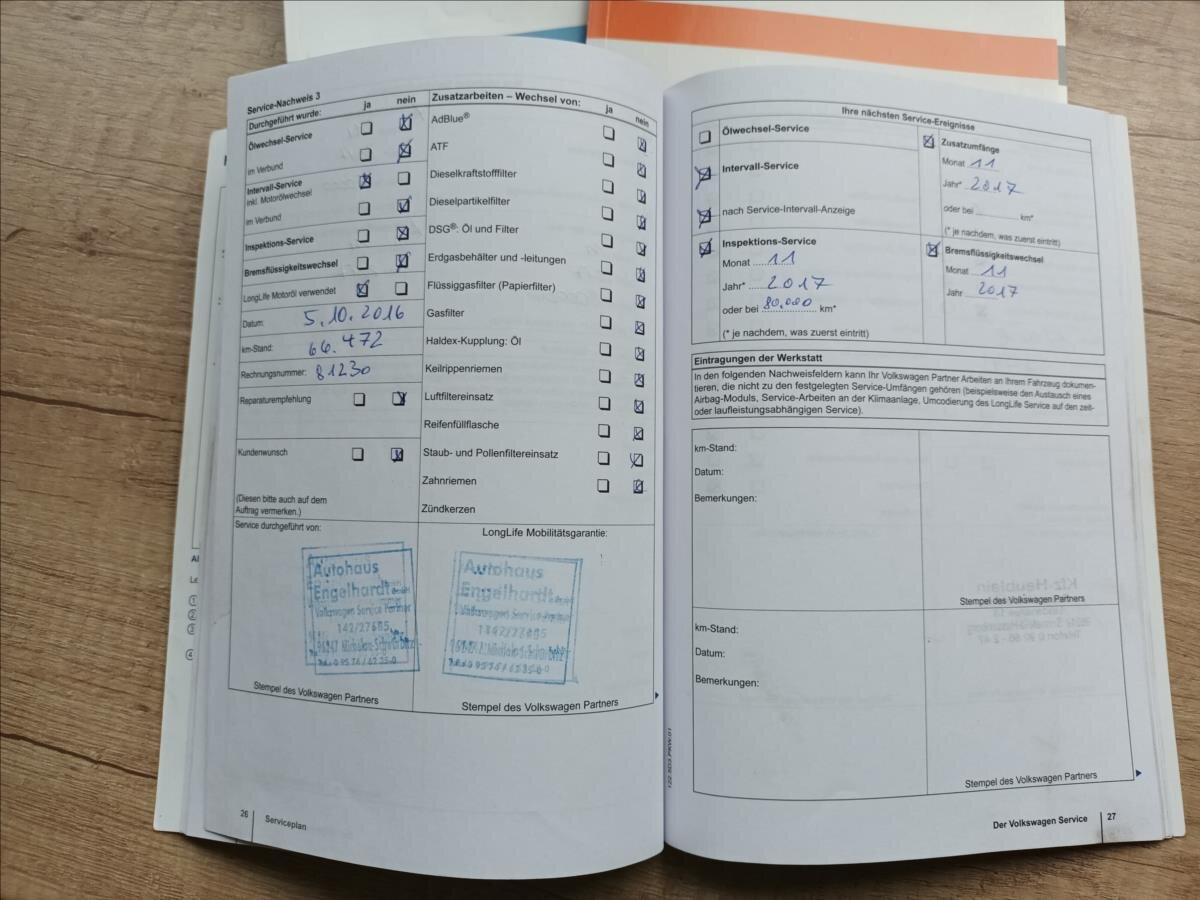 Service-Nachweis 3
Durchgeführt wurde: ja nein
Ölwechsel-Service
im Verbund
Intervall-Service
inkl. Motorölwechsel
im Verbund
Inspektions-Service
Bremsflüssigkeitswechsel
LongLife Motoröl verwendet
Datum: 5.10.2016
km-Stand: 66.472
Rechnungsnummer: 81230
Reparaturempfehlung
Kundenwunsch
(Diesen bitte auch auf dem
Auftrag vermerken.)
Service durchgeführt von:
Autohaus
Engelhardt
Volkswagen Service Partner
Stempel des Volkswagen Partners
Zusatzarbeiten – Wechsel von: ja nein
AdBlue®
ATF
Dieselkraftstofffilter
Dieselpartikelfilter
DSG®: Öl und Filter
Erdgasbehälter und -leitungen
Flüssiggasfilter (Papierfilter)
Gasfilter
Haldex-Kupplung: Öl
Keilrippenriemen
Luftfiltereinsatz
Reifenfüllflasche
Staub- und Pollenfiltereinsatz
Zahnriemen
Zündkerzen
LongLife Mobilitätsgarantie:
Autohaus
Engelhardt
Volkswagen Service Partner
Stempel des Volkswagen Partners
26 Serviceplan
Ihre nächsten Service-Ereignisse
Ölwechsel-Service
Intervall-Service
nach Service-Intervall-Anzeige
Inspektions-Service
Monat 11
Jahr* 2017
oder bei 80.000 km*
(* je nachdem, was zuerst eintritt)
Zusatzumfänge
Monat 11
Jahr* 2017
oder bei km*
(* je nachdem, was zuerst eintritt)
Bremsflüssigkeitswechsel
Monat 11
Jahr 2017
Eintragungen der Werkstatt
In den folgenden Nachweisfeldern kann Ihr Volkswagen Partner Arbeiten an Ihrem Fahrzeug dokumen-
tieren, die nicht zu den festgelegten Service-Umfängen gehören (beispielsweise den Austausch eines
Airbag-Moduls, Service-Arbeiten an der Klimaanlage, Umcodierung des LongLife Service auf den zeit-
oder laufleistungsabhängigen Service).
km-Stand:
Datum:
Bemerkungen:
Stempel des Volkswagen Partners
km-Stand:
Datum:
Bemerkungen:
Stempel des Volkswagen Partners
Der Volkswagen Service 27